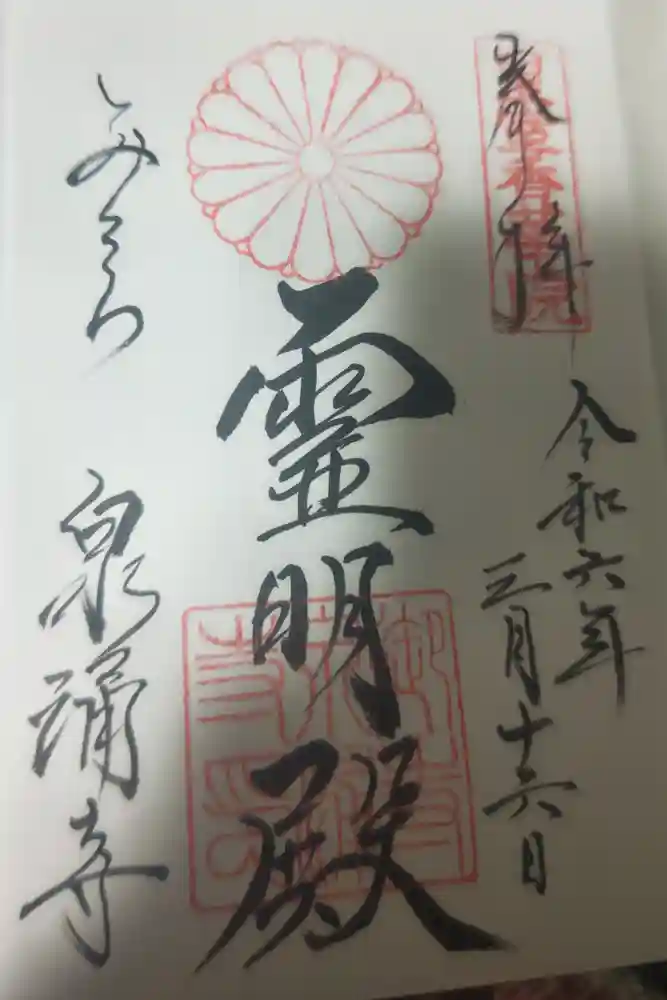 奉拝
令和六年
三月十六日
霊明殿
みてら
泉涌寺